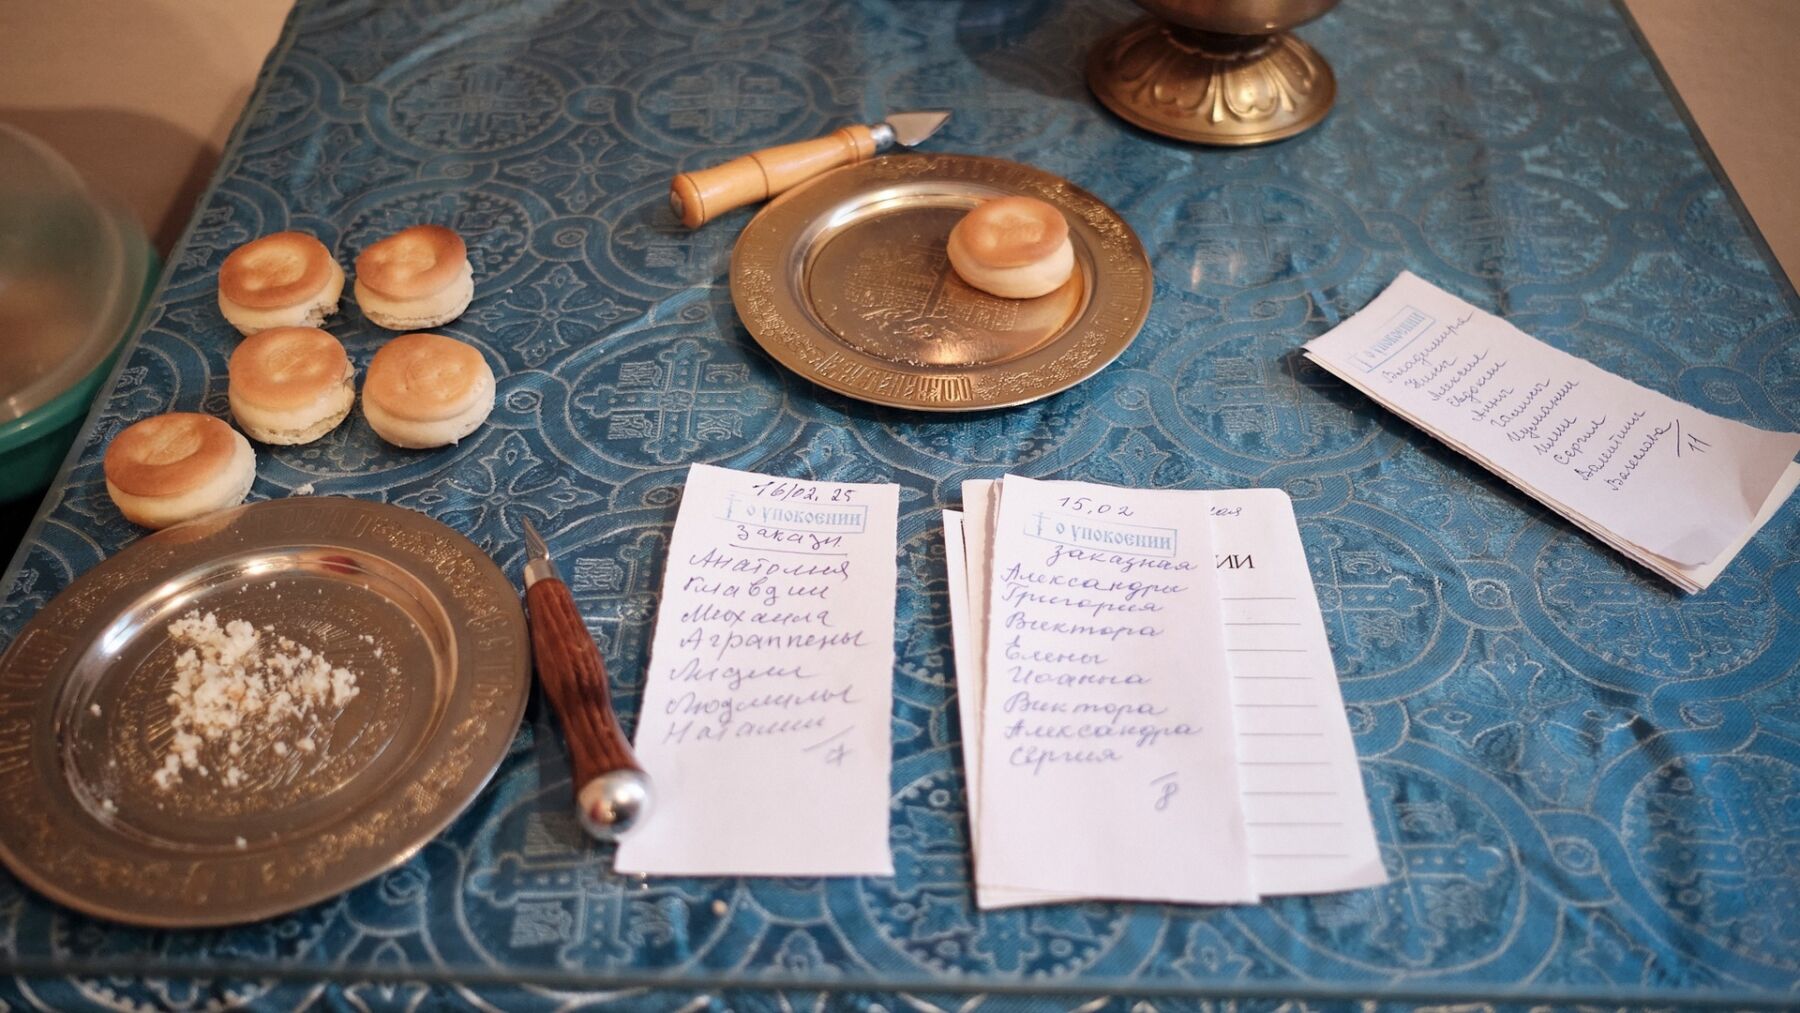 16/02. 25
о упокоении
заказн.
Анатолия
Клавдии
Михаила
Агриппены
Лидии
Людмилы
Наталии
7
15.02
о упокоении
заказная
Александры
Григория
Виктора
Елены
Иоанна
Виктора
Александра
Сергия
8
ИИ
о упокоении
Владимира
Нины
Алексия
Евдокии
Анны
Галины
Нины
Сергия
Валентины
Вячеслава
11